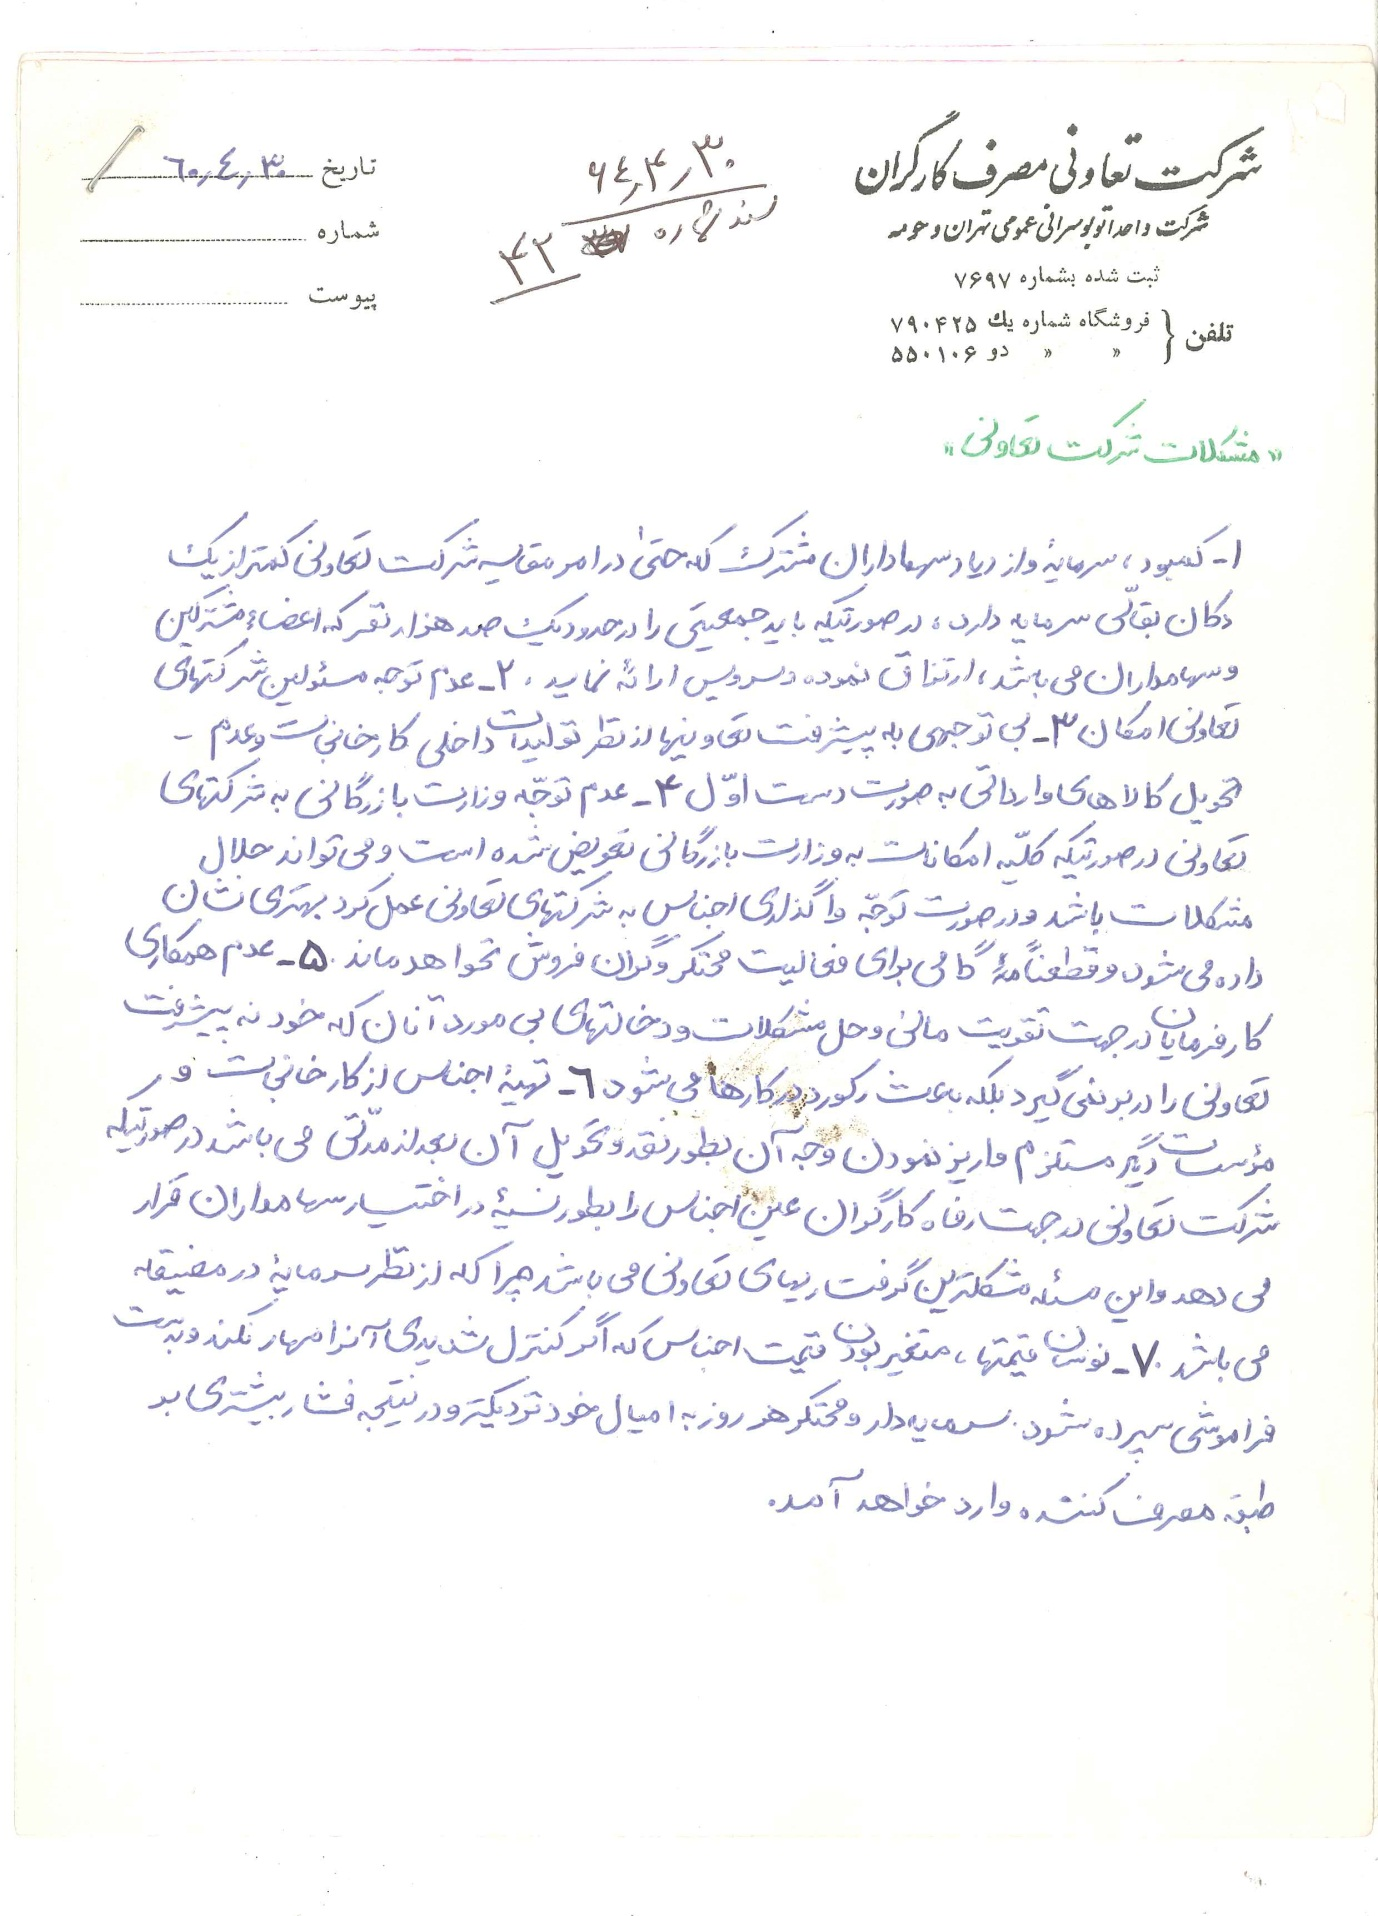 شرکت تعاونی مصرف کارگران
شرکت واحد اتوبوسرانی عمومی تهران و حومه
ثبت شده بشماره ۷۶۹۷
تلفن { فروشگاه شماره یك ۷۹۰۴۲۵
» » دو ۵۵۰۱۰۶
۶۴٫۴٫۳۰
سند شماره ۴۲
تاریخ ۶۰٫۴٫۳۰
شماره
پیوست
«مشکلات شرکت تعاونی»
۱- کمبود، سرمایهٔ و ازدیاد سهامداران مشترک که حتیٰ در امر مقایسه شرکت تعاونی کمتر از یک
دکان بقالّی سرمایه دارد، در صورتیکه باید جمعیتی را در حدود یک صد هزار نفر که اعضاء مشترکین
و سهامداران می باشد، ارتزاق نموده و سرویس ارائهٔ نماید، ۲- عدم توجه مسئولین شرکتهای
تعاونی امکان ۳- بی توجهی به پیشرفت تعاونیها از نظر تولیدات داخلی کارخانجات و عدم -
تحویل کالاهای وارداتی به صورت دست اوّل ۴- عدم توجّه وزارت بازرگانی به شرکتهای
تعاونی در صورتیکه کلیّه امکانات به وزارت بازرگانی تفویض شده است و می تواند حلال
مشکلات باشد و در صورت توجّه واگذاری اجناس به شرکتهای تعاونی عمل کرد بهتری نشان
داده می شود و قطعناًمهٔ گامی برای فعالیت محتکر و گران فروش نخواهد ماند. ۵- عدم همکاری
کارفرمایان در جهت تقویت مالی و حل مشکلات و دخالتهای بی مورد آنان که خود نه پیشرفت
تعاونی را در بر نمی گیرد بلکه باعث رکورد در کارها می شود ۶- تهیهٔ اجناس از کارخانجات و
مؤسسات دیگر مستلزم واریز نمودن وجه آن بطور نقد و تحویل آن بعد از مدّتی می باشد در صورتیکه
شرکت تعاونی در جهت رفاه کارگران عین اجناس را بطور نسیهٔ در اختیار سهامداران قرار
می دهد و این مسئله مشکلترین گرفتاریهای تعاونی می باشد چرا که از نظر سرمایهٔ در مضیقه
می باشد. ۷- نوسان قیمتها، متغیر بودن قیمت اجناس که اگر کنترل شدیدی آنرا مهار نکند و بدست
فراموشی سپرده شود. سرمایه دار و محتکر هر روز به امیال خود نزدیکتر و در نتیجه فشار بیشتری بد
طبقه مصرف کننده وارد خواهد آمد.